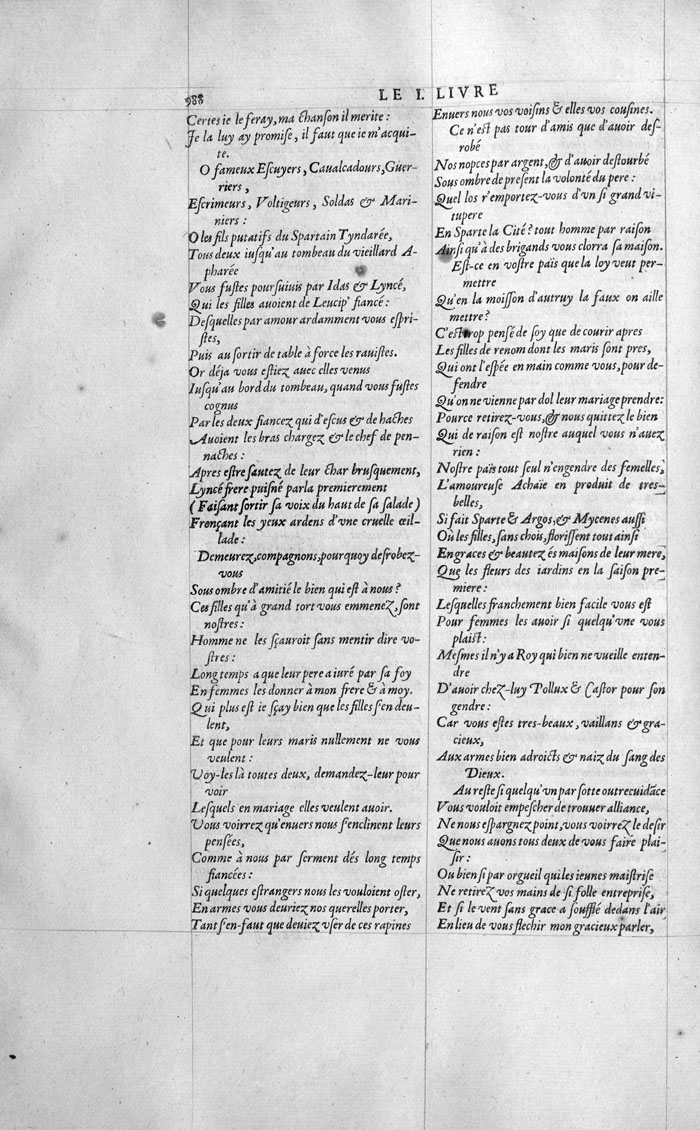 988
LE I. LIVRE
Certes ie le feray, ma chanſon il merite :
Je la luy ay promiſe, il faut que ie m'acqui-
te.
O fameux Eſcuyers, Caualcadours, Guer-
riers,
Eſcrimeurs, Voltigeurs, Soldas & Mari-
niers :
O les fils putatifs du Spartain Tyndarée,
Tous deux iuſqu'au tombeau du vieillard A-
pharée
Vous fuſtes pourſuiuis par Idas & Lyncé,
Qui les filles auoient de Leucip' fiancé :
Deſquelles par amour ardamment vous eſpri-
ſtes,
Puis au ſortir de table à force les rauiſtes.
Or déja vous eſtiez auec elles venus
Iuſqu'au bord du tombeau, quand vous fuſtes
cognus
Par les deux fiancez qui d'eſcus & de haches
Auoient les bras chargez & le chef de pen-
naches :
Apres eſtre ſautez de leur char bruſquement,
Lyncé frere puiſné parla premierement
(Faiſant ſortir ſa voix du haut de ſa ſalade)
Fronçant les yeux ardens d'vne cruelle œil-
lade :
Demeurez, compagnons, pourquoy deſrobez-
vous
Sous ombre d'amitié le bien qui eſt à nous ?
Ces filles qu'à grand tort vous emmenez, ſont
noſtres :
Homme ne les ſçauroit ſans mentir dire vo-
ſtres :
Long temps a que leur pere a iuré par ſa foy
En femmes les donner à mon frere & à moy.
Qui plus eſt ie ſçay bien que les filles ſ'en deu-
lent,
Et que pour leurs maris nullement ne vous
veulent :
Voy-les là toutes deux, demandez-leur pour
voir
Leſquels en mariage elles veulent auoir.
Vous voirrez qu'enuers nous ſ'enclinent leurs
penſées,
Comme à nous par ſerment dés long temps
fiancées :
Si quelques eſtrangers nous les vouloient oſter,
En armes vous deuriez nos querelles porter,
Tant ſ'en-faut que deuiez vſer de ces rapines
Enuers nous vos voiſins & elles vos couſines.
Ce n'eſt pas tour d'amis que d'auoir deſ-
robé
Nos nopces par argent, & d'auoir deſtourbé
Sous ombre de preſent la volonté du pere :
Quel los r'emportez-vous d'vn ſi grand vi-
tupere
En Sparte la Cité ? tout homme par raiſon
Ainſi qu'à des brigands vous clorra ſa maiſon.
Eſt-ce en voſtre païs que la loy veut per-
mettre
Qu'en la moiſſon d'autruy la faux on aille
mettre ?
C'eſt trop penſé de ſoy que de courir apres
Les filles de renom dont les maris ſont pres,
Qui ont l'eſpée en main comme vous, pour de-
fendre
Qu'on ne vienne par dol leur mariage prendre:
Pource retirez-vous, & nous quittez le bien
Qui de raiſon eſt noſtre auquel vous n'auez
rien :
Noſtre païs tout ſeul n'engendre des femelles,
L'amoureuſe Achaïe en produit de tres-
belles,
Si fait Sparte & Argos, & Mycenes auſſi
Où les filles, ſans chois, floriſſent tout ainſi
En graces & beautez és maiſons de leur mere,
Que les fleurs des iardins en la ſaiſon pre-
miere :
Leſquelles franchement bien facile vous eſt
Pour femmes les auoir ſi quelqu'vne vous
plaiſt :
Meſmes il n'y a Roy qui bien ne vueille enten-
dre
D'auoir chez-luy Pollux & Caſtor pour ſon
gendre :
Car vous eſtes tres-beaux, vaillans & gra-
cieux,
Aux armes bien adroicts & naiz du ſang des
Dieux.
Au reſte ſi quelqu'vn par ſotte outrecuidãce
Vous vouloit empeſcher de trouuer alliance,
Ne nous eſpargnez point, vous voirrez le deſir
Que nous auons tous deux de vous faire plai-
ſir :
Ou bien ſi par orgueil qui les ieunes maiſtriſe
Ne retirez vos mains de ſi folle entrepriſe,
Et ſi le vent ſans grace a ſoufflé dedans l'air
En lieu de vous flechir mon gracieux parler,